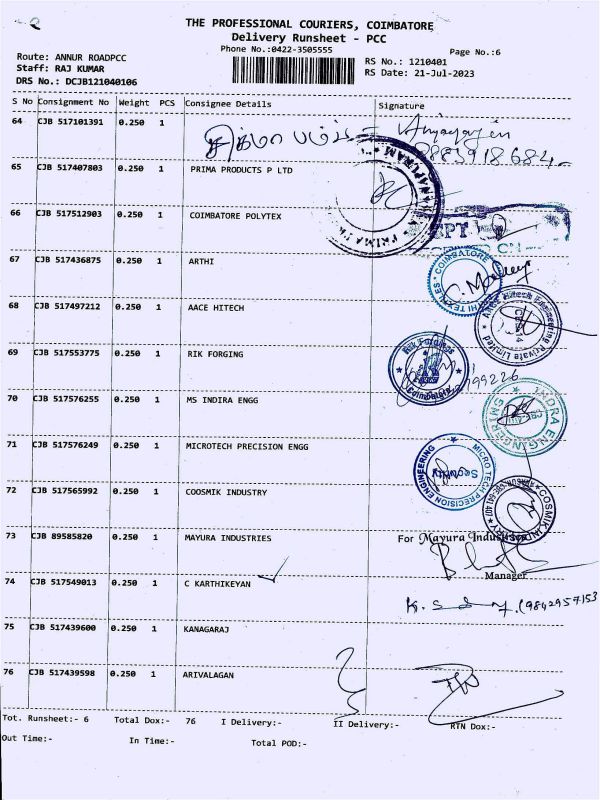 THE PROFESSIONAL COURIERS, COIMBATORE
Delivery Runsheet - PCC
Phone No.:0422-3505555
Page No.:6
Route: ANNUR ROADPCC
Staff: RAJ KUMAR
DRS No.: DCJB121040106
RS No.: 1210401
RS Date: 21-Jul-2023
S No Consignment No Weight PCS Consignee Details Signature
64 CJB 517101391 0.250 1
65 CJB 517407803 0.250 1 PRIMA PRODUCTS P LTD
66 CJB 517512903 0.250 1 COIMBATORE POLYTEX
67 CJB 517436875 0.250 1 ARTHI
68 CJB 517497212 0.250 1 AACE HITECH
69 CJB 517553775 0.250 1 RIK FORGING
70 CJB 517576255 0.250 1 MS INDIRA ENGG
71 CJB 517576249 0.250 1 MICROTECH PRECISION ENGG
Security
72 CJB 517565992 0.250 1 COOSMIK INDUSTRY
73 CJB 89585820 0.250 1 MAYURA INDUSTRIES
For Mayura Industries
Manager
74 CJB 517549013 0.250 1 C KARTHIKEYAN
75 CJB 517439600 0.250 1 KANAGARAJ
76 CJB 517439598 0.250 1 ARIVALAGAN
Tot. Runsheet:- 6 Total Dox:- 76 I Delivery:- II Delivery:- RTN Dox:-
Out Time:- In Time:- Total POD:-